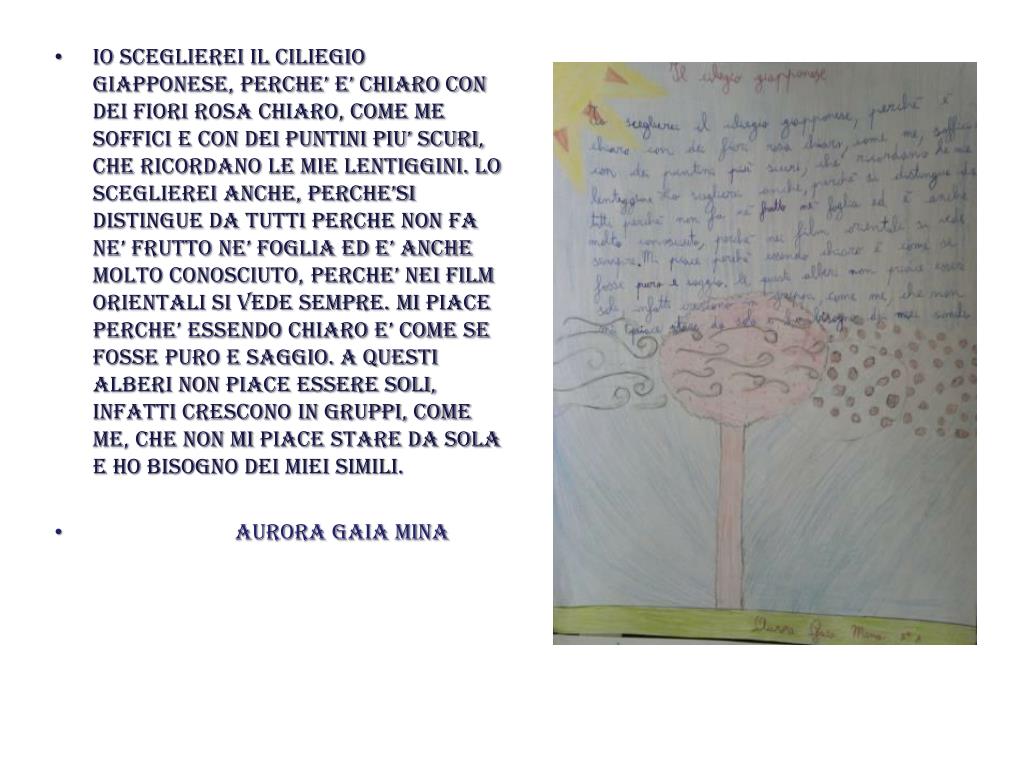 • IO SCEGLIEREI IL CILIEGIO
GIAPPONESE, PERCHE’ E’ CHIARO CON
DEI FIORI ROSA CHIARO, COME ME
SOFFICI E CON DEI PUNTINI PIU’ SCURI,
CHE RICORDANO LE MIE LENTIGGINI. LO
SCEGLIEREI ANCHE, PERCHE’SI
DISTINGUE DA TUTTI PERCHE NON FA
NE’ FRUTTO NE’ FOGLIA ED E’ ANCHE
MOLTO CONOSCIUTO, PERCHE’ NEI FILM
ORIENTALI SI VEDE SEMPRE. MI PIACE
PERCHE’ ESSENDO CHIARO E’ COME SE
FOSSE PURO E SAGGIO. A QUESTI
ALBERI NON PIACE ESSERE SOLI,
INFATTI CRESCONO IN GRUPPI, COME
ME, CHE NON MI PIACE STARE DA SOLA
E HO BISOGNO DEI MIEI SIMILI.
• AURORA GAIA MINA
Il ciliegio giapponese
Io sceglierei il ciliegio giapponese, perché è
chiaro con dei fiori rosa chiaro, come me, soffici
con dei puntini più scuri, che ricordano le mie
lentiggini. Lo sceglierei anche, perché si distingue da
tutti perché non fa né frutto né foglia ed è anche
molto conosciuto, perché nei film orientali si vede
sempre. Mi piace perché essendo chiaro è come se
fosse puro e saggio. A questi alberi non piace essere
soli infatti crescono in gruppi, come me, che non
mi piace stare da sola e ho bisogno dei miei simili
Aurora Gaia Mina